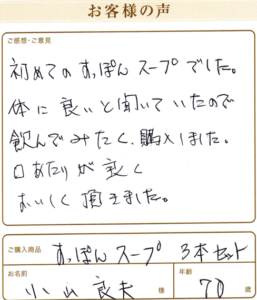 お客様の声
ご感想・ご意見
初めてのすっぽんスープでした。
体に良いと聞いていたので
飲んでみたく、購入しました。
口あたりが良く
おいしく頂きました。
ご購入商品 すっぽんスープ 3本セット
お名前 小山良夫 様 年齢 70 歳